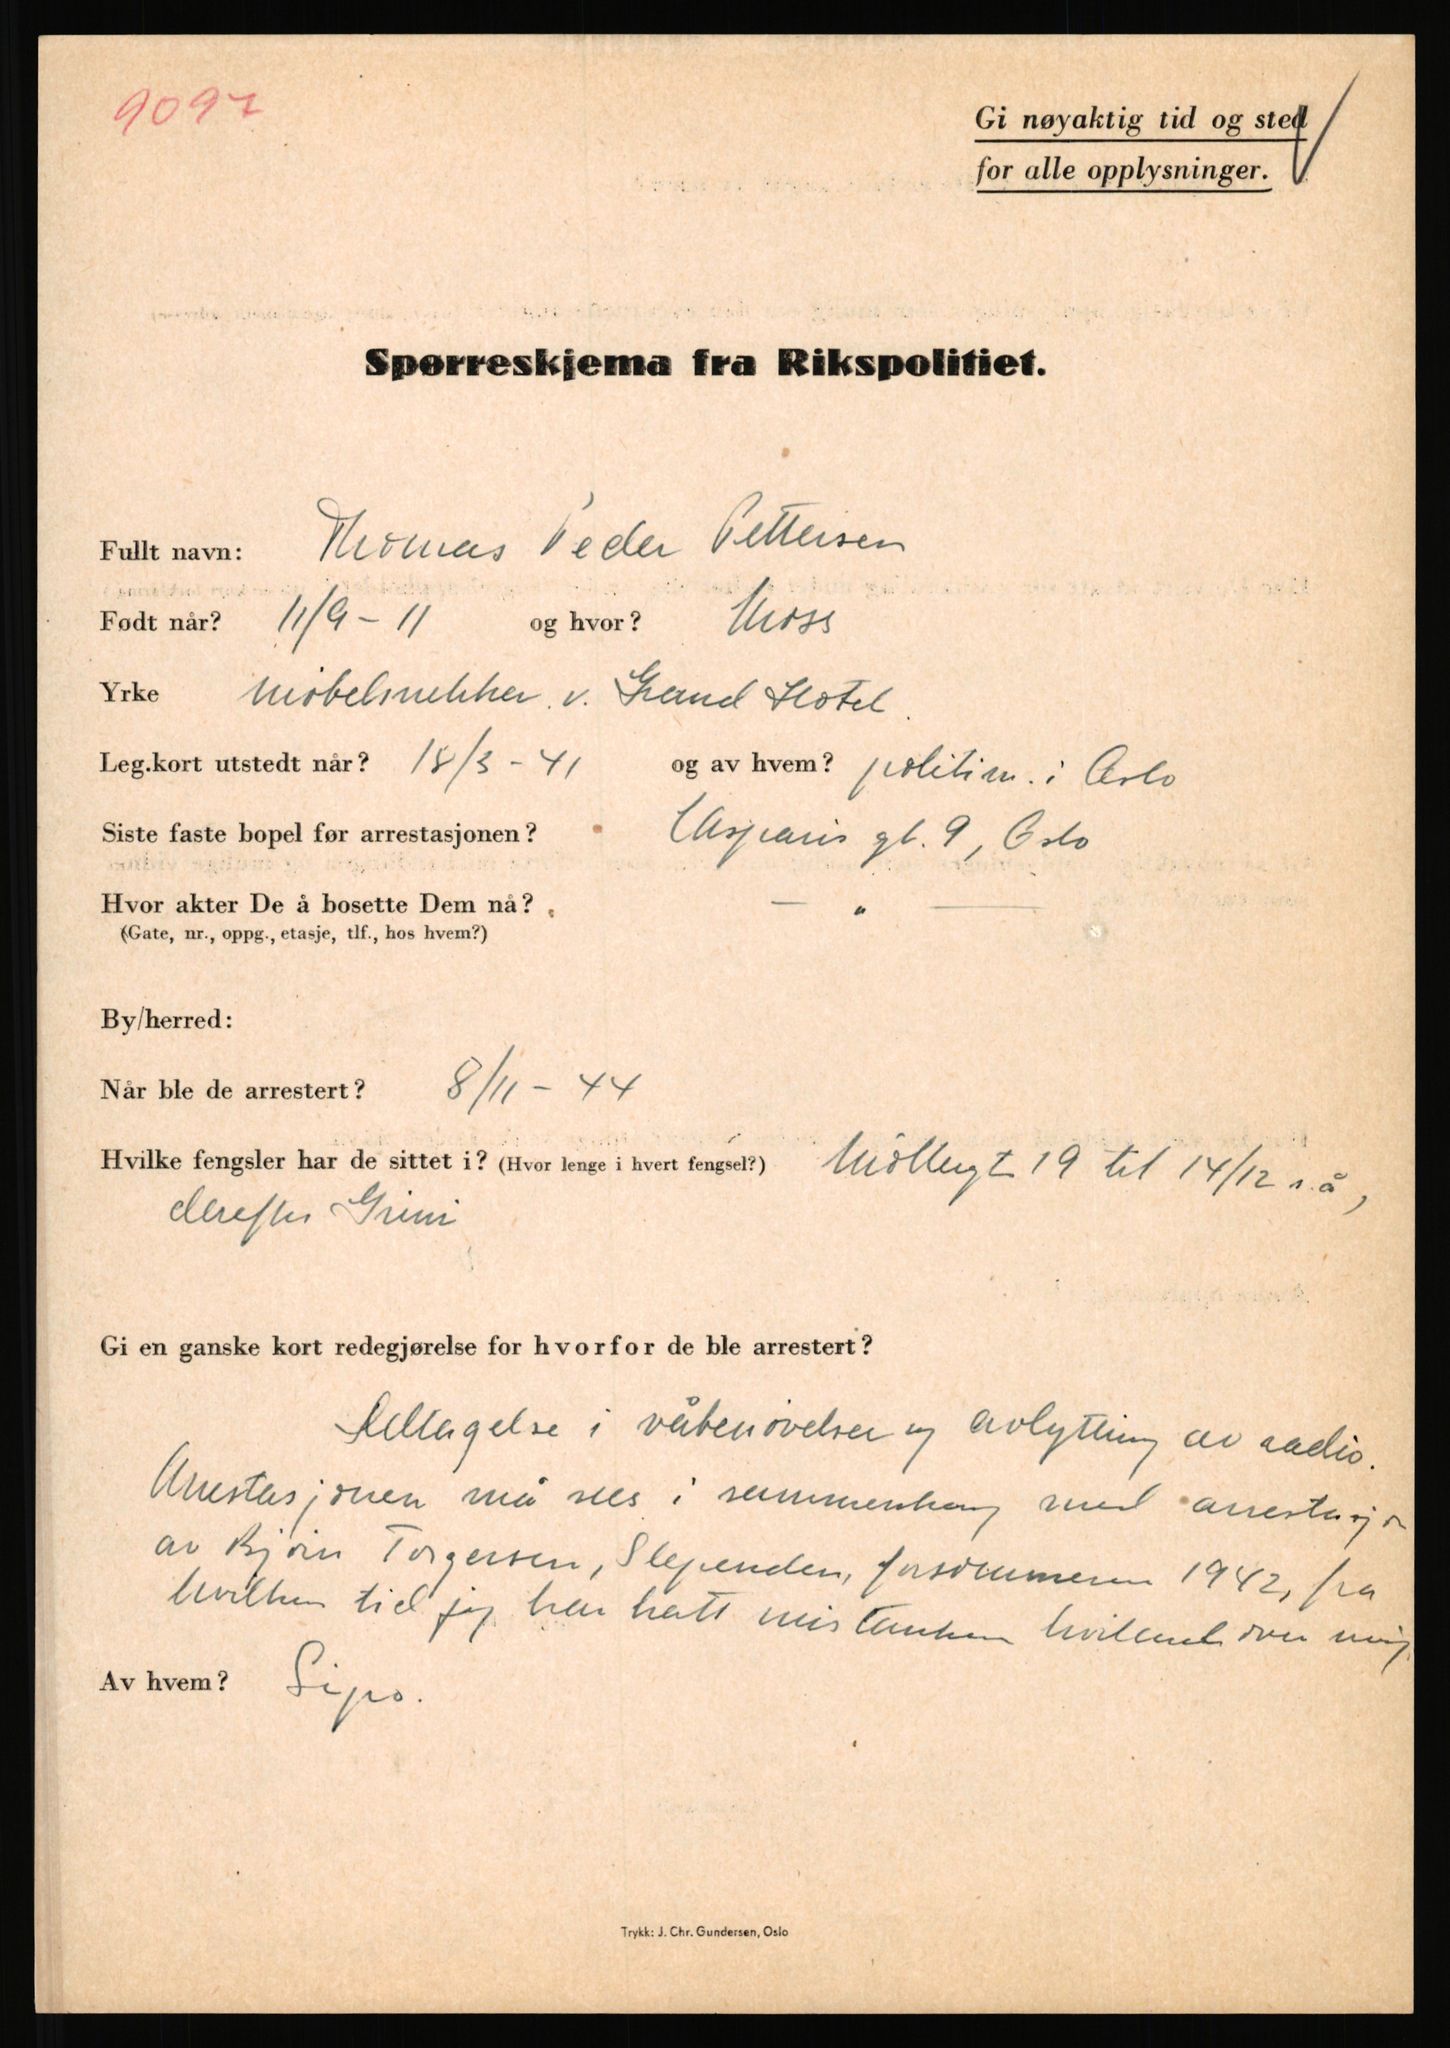 9097
Gi nøyaktig tid og sted
for alle opplysninger.
Spørreskjema fra Rikspolitiet.
Fullt navn: Thomas Peder Pettersen
Født når? 11/9 - 11 og hvor? Moss
Yrke Møbelsnekker v. Grand Hotel.
Leg.kort utstedt når? 18/3 - 41 og av hvem? politim. i Oslo
Siste faste bopel før arrestasjonen? Casparis gt. 9, Oslo
Hvor akter De å bosette Dem nå? — " —
(Gate, nr., oppg., etasje, tlf., hos hvem?)
By/herred:
Når ble de arrestert? 8/11 - 44
Hvilke fengsler har de sittet i? (Hvor lenge i hvert fengsel?) Møllergt 19 til 14/12 s.å,
derefter Grini
Gi en ganske kort redegjørelse for hvorfor de ble arrestert?
Deltagelse i våbenøvelser og avlytting av radio.
Arrestasjonen må sees i sammenheng med arrestasj
av Bjørn Torgersen, Slependen, forsommeren 1942, fra
hvilken tid jeg har hatt mistanken hvilende over mig.
Av hvem? Sipo.
Trykk: J. Chr. Gundersen, Oslo